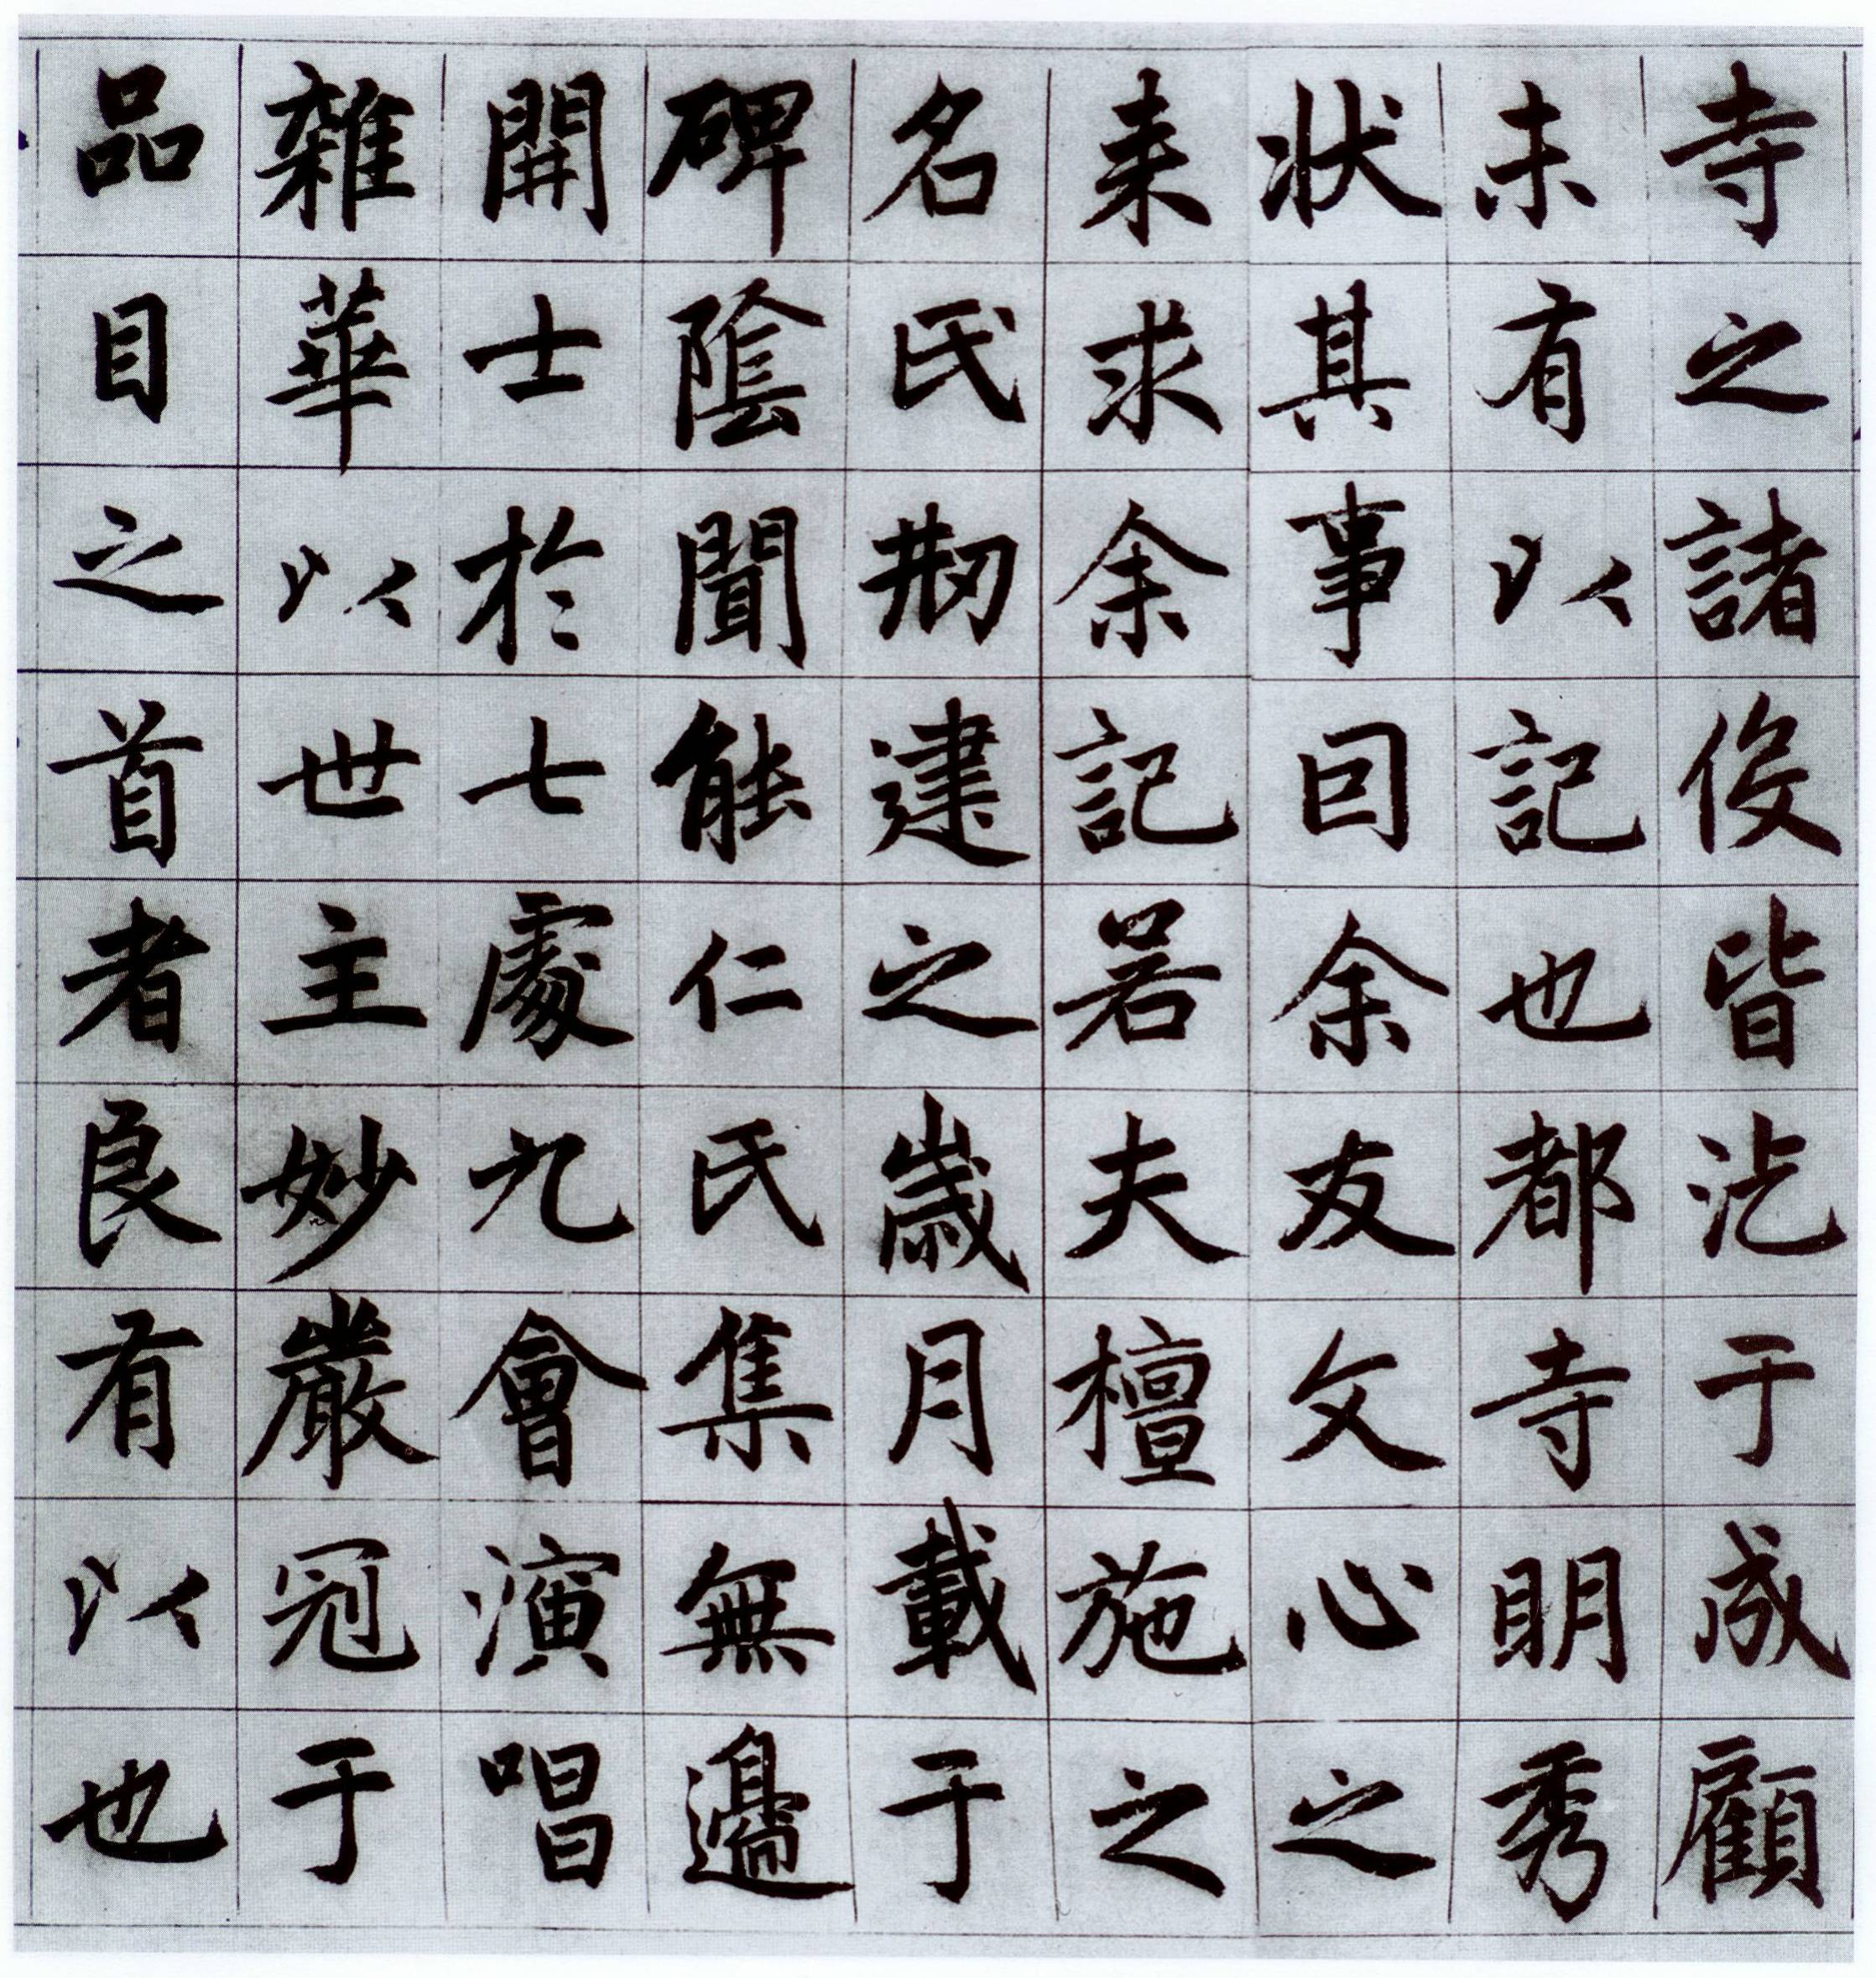 寺之諸役皆汔于成顧
未有以記也都寺明秀
状其事囙余友文心之
来求余記若夫檀施之
名氏剏建之歲月載于
碑陰聞能仁氏集無邊
開士於七處九會演唱
雜華以世主妙嚴冠于
品目之首者良有以也